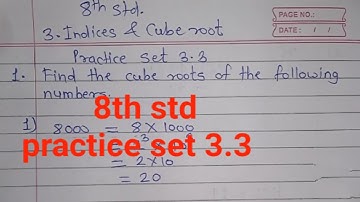 8th std.
PAGE NO.:
DATE: / /
3. Indices & Cube root
Practice set 3.3
1. Find the cube roots of the following
numbers.
8th std
1) 8000 = 8 × 1000
practice set 3.3
= 2 × 10
= 20